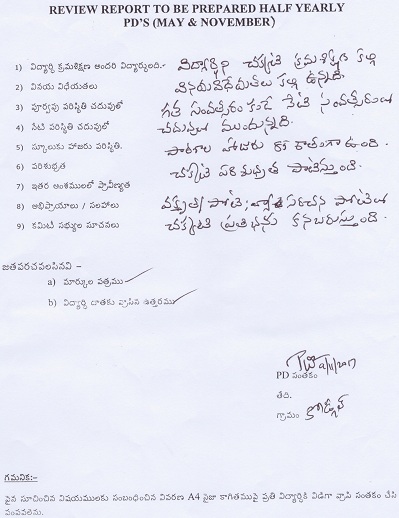 REVIEW REPORT TO BE PREPARED HALF YEARLY
PD'S (MAY & NOVEMBER)
1) విద్యార్థి క్రమశిక్షణ అందరి విద్యార్థులది.- విద్యార్థిని చక్కటి క్రమశిక్షణ కల్గి
2) వినయ విధేయతలు వినయవిధేయతలు కల్గి ఉన్నది.
3) పూర్వపు పరిస్థితి చదువులో గత సంవత్సరం కంటే నేటి సంవత్సరంలో
4) నేటి పరిస్థితి చదువులో చదువులో ముందున్నది.
5) స్కూలుకు హాజరు పరిస్థితి. పాఠశాల హాజరు శాతంగా ఉంది.
6) పరిశుభ్రత చక్కటి పరిశుభ్రత పాటిస్తుంది.
7) ఇతర అంశములలో ప్రావీణ్యత
8) అభిప్రాయాలు / సలహాలు వక్తృత్వ పోటీ, వ్యాస రచన పోటీలో
9) కమిటి సభ్యుల సూచనలు చక్కటి ప్రతిభను కనబరుస్తుంది.
జతపరచవలసినవి -
a) మార్కుల పత్రము
b) విద్యార్థి దాతకు వ్రాసిన ఉత్తరము
PD సంతకం
తేది.
గ్రామం
గమనిక:-
పైన సూచించిన విషయములకు సంబంధించిన వివరణ A4 సైజు కాగితముపై ప్రతి విద్యార్థికి విడిగా వ్రాసి సంతకం చేసి
పంపవలెను.